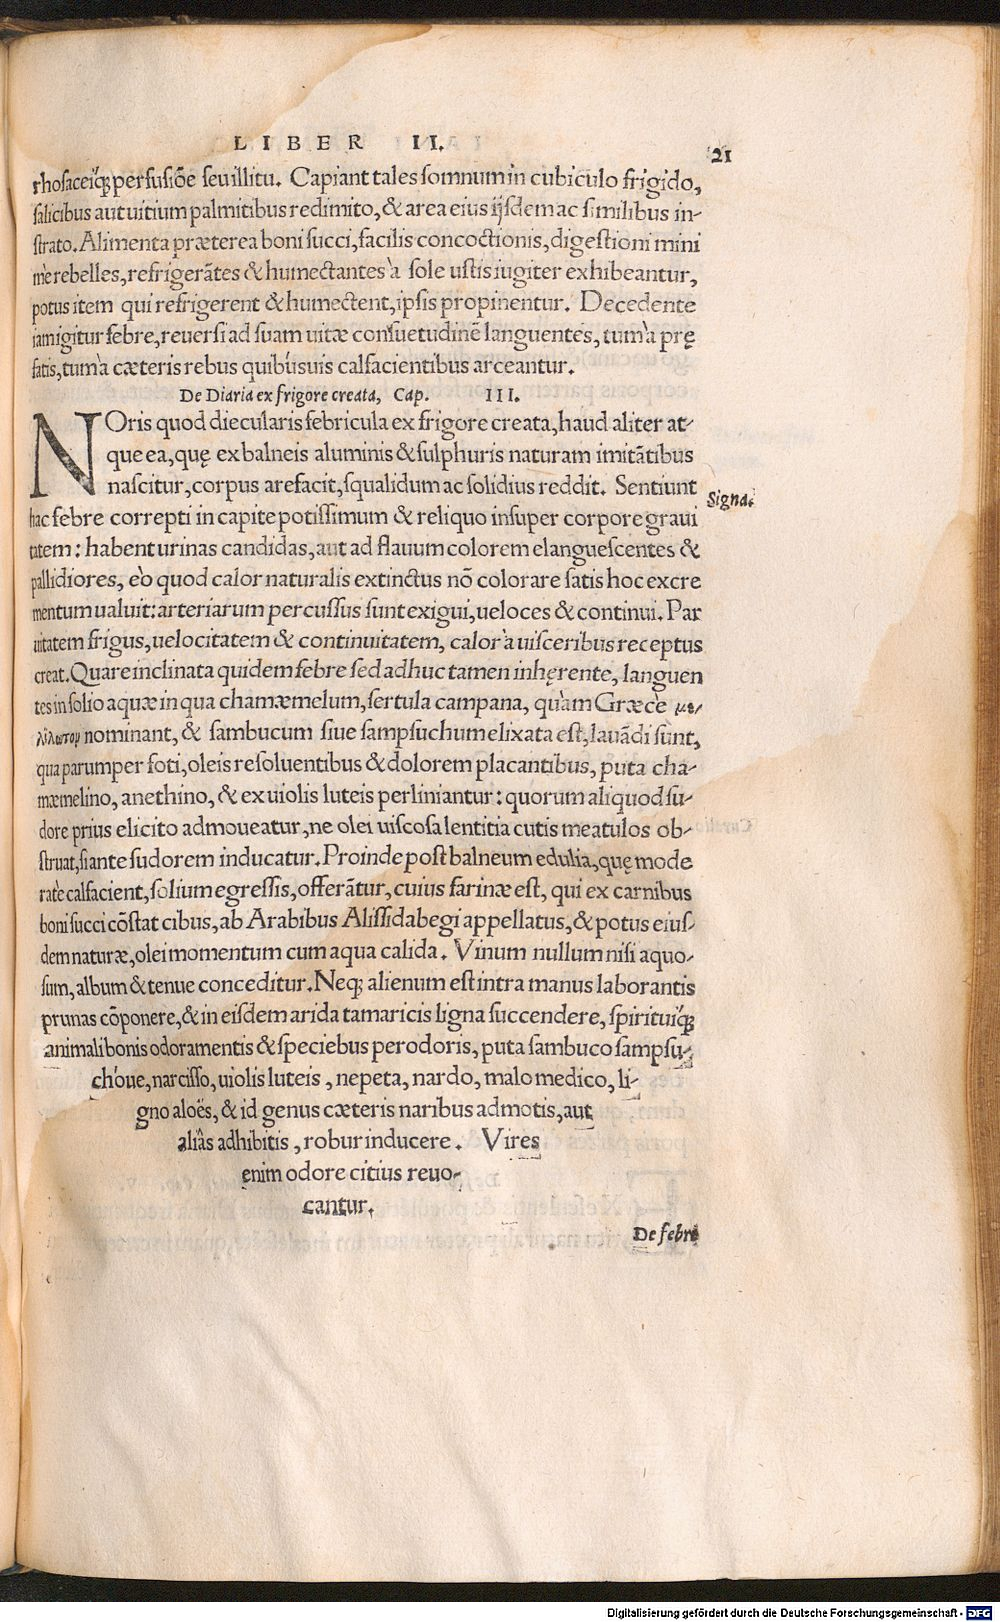 LIBER II.
21
rhosaceiq́; perfusiõe seu illitu. Capiant tales somnum in cubiculo frigido,
salicibus aut uitium palmitibus redimito, & area eius ijsdem ac similibus in-
strato. Alimenta præterea boni succi, facilis concoctionis, digestioni mini
mè rebelles, refrigerãtes & humectantes à sole ustis iugiter exhibeantur,
potus item qui refrigerent & humectent, ipsis propinentur. Decedente
iam igitur febre, reuersi ad suam uitæ consuetudinẽ languentes, tum à prę
fatis, tum à cæteris rebus quibusuis calfacientibus arceantur.
De Diaria ex frigore creata, Cap. III.
NOris quod diecularis febricula ex frigore creata, haud aliter at-
que ea, quę ex balneis aluminis & sulphuris naturam imitãtibus
nascitur, corpus arefacit, squalidum ac solidius reddit. Sentiunt
Signa.
hac febre correpti in capite potissimum & reliquo insuper corpore graui
tatem: habent urinas candidas, aut ad flauum colorem elanguescentes &
pallidiores, eò quod calor naturalis extinctus nõ colorare satis hoc excre
mentum ualuit: arteriarum percussus sunt exigui, ueloces & continui. Par
uitatem frigus, uelocitatem & continuitatem, calor à uisceribus receptus
creat. Quare inclinata quidem febre sed adhuc tamen inhęrente, languen
tes in solio aquæ in qua chamæmelum, sertula campana, quàm Græcè με-
λίλωτον nominant, & sambucum siue sampsuchum elixata est, lauãdi sunt,
qua parumper foti, oleis resoluentibus & dolorem placantibus, puta cha-
mæmelino, anethino, & ex uiolis luteis perliniantur: quorum aliquod su-
dore prius elicito admoueatur, ne olei uiscosa lentitia cutis meatulos ob-
struat, si ante sudorem inducatur. Proinde post balneum edulia, quę mode
ratè calfacient, solium egressis, offerãtur, cuius farinæ est, qui ex carnibus
boni succi cõstat cibus, ab Arabibus Alissidabegi appellatus, & potus eius-
dem naturæ, olei momentum cum aqua calida. Vinum nullum nisi aquo-
sum, album & tenue conceditur. Neq; alienum est intra manus laborantis
prunas cõponere, & in eisdem arida tamaricis ligna succendere, spirituiq́;
animali bonis odoramentis & speciebus perodoris, puta sambuco sampsu-
chóue, narcisso, uiolis luteis, nepeta, nardo, malo medico, li-
gno aloës, & id genus cæteris naribus admotis, aut
aliâs adhibitis, robur inducere. Vires
enim odore citius reuo-
cantur.
De febre
Digitalisierung gefördert durch die Deutsche Forschungsgemeinschaft - DFG